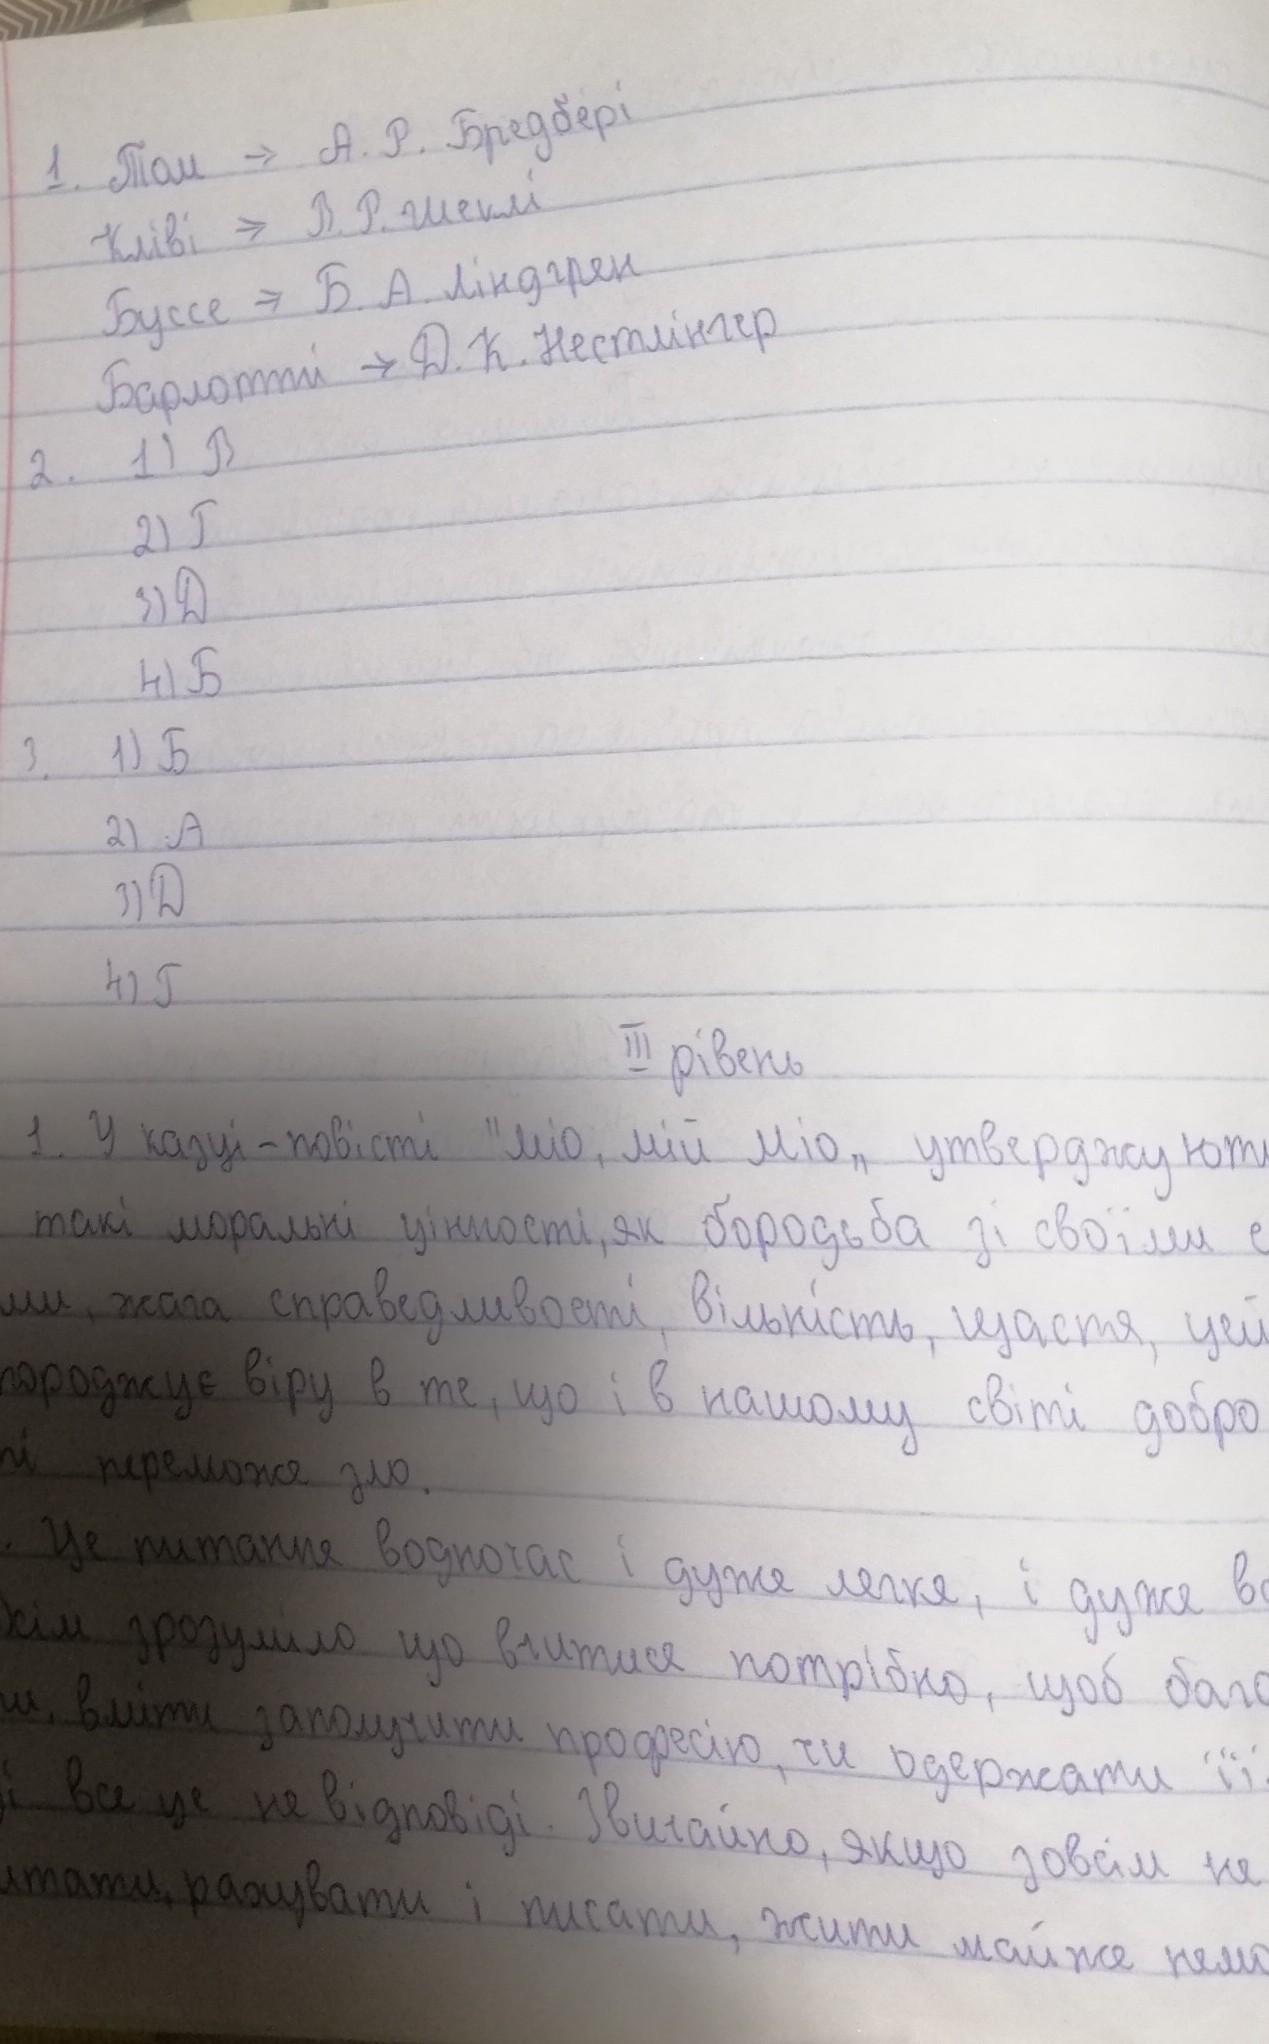 1. Том → А. Р. Бредбері
Кліві → В. Р. Шеклі
Буссе → Б. А. Ліндгрен
Барлотті → Д. К. Нестлінгер
2. 1) В
2) Г
3) Д
4) Б
3. 1) Б
2) А
3) Д
4) Г
III рівень
1. У казці-повісті "Міо, мій Міо„ утверджують
такі моральні цінності, як бородьба зі своїми
ми, жага справедливості, вільність, щастя, цей
породжує віру в те, що і в нашому світі добро
переможе зло.
Це питання водночас і дуже легке, і дуже
зрозуміло що вчитися потрібно, щоб
вміти заполучити професію, чи одержати її
все це не відповіді. Звичайно, якщо зовсім не
рахувати і писати, жити майже